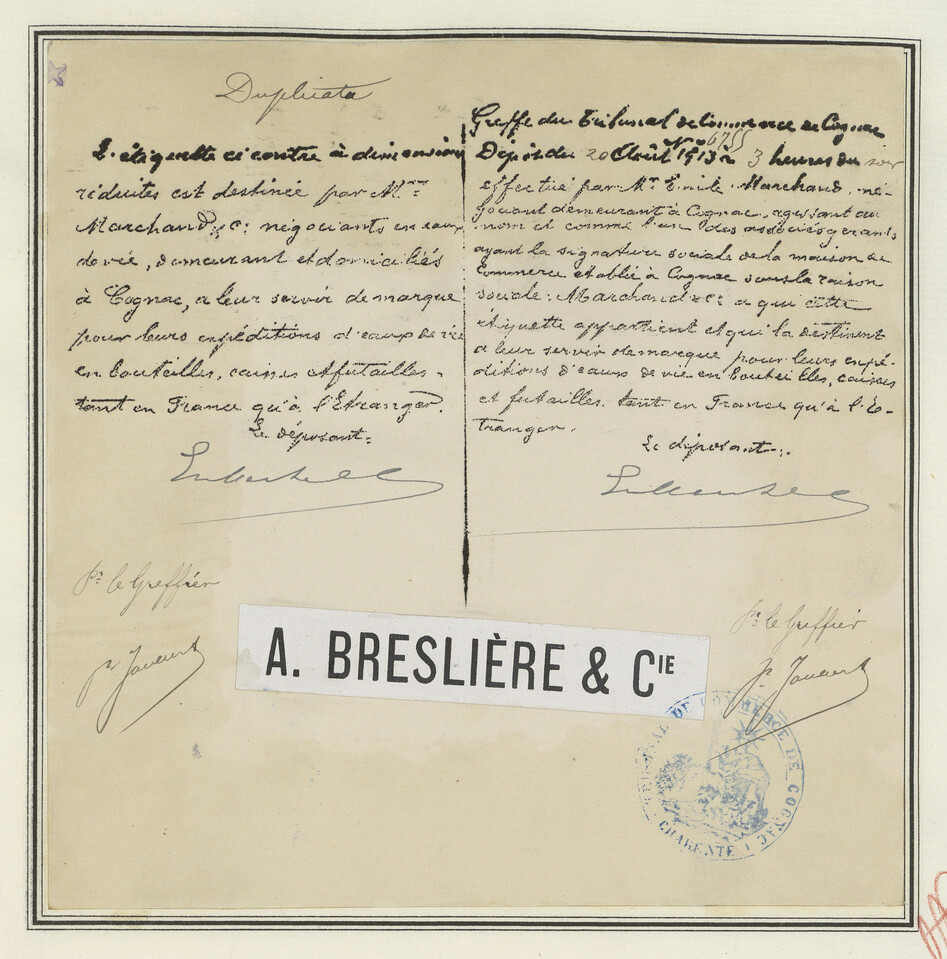 Duplicata
L'étiquette ci contre à dimensions
réduites est destinée par Mrs
Marchand & Ce négociants en eaux
de vie, demeurant et domiciliés
à Cognac, a leur servir de marque
pour leurs expéditions d'eaux de vie
en bouteilles, caisses et futailles
tant en France qu'à l'Etranger.
Le déposant:
Pr le Greffier
Greffe du Tribunal de Commerce de Cognac
No 6755
Dépôt du 20 Août 1913 à 3 heures du soir
effectué par Mr Emile Marchand, né-
gociant demeurant à Cognac, agissant au
nom et comme l'un des associés gérants
ayant la signature sociale de la maison de
Commerce établie à Cognac sous la raison
sociale: Marchand & Ce a qui cette
étiquette appartient et qui la destinent
a leur servir de marque pour leurs expé-
ditions d'eaux de vie en bouteilles, caisses
et futailles tant en France qu'à l'E-
tranger.
Le déposant:
Pr le Greffier
A. BRESLIÈRE & CIE
TRIBUNAL DE COMMERCE DE COGNAC
CHARENTE